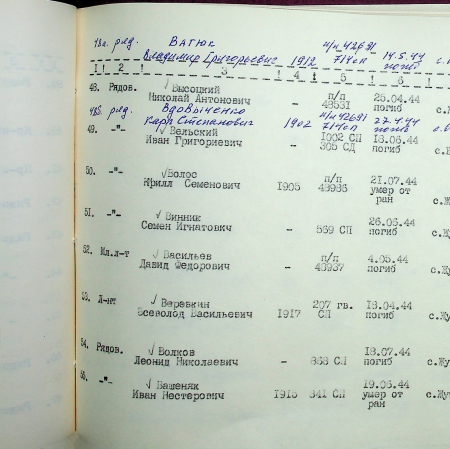 48а. ряд. Ватюк п/п 42691 14.5.44
Владимир Григорьевич 1912 714 сп погиб с.
1 2 3 4 5 6
48. Рядов. Высоцкий п/п 25.04.44
Николай Антонович - 48531 погиб с.
48б. ряд. Вдовыченко п/п 42691 27.4.44
Карп Степанович 1902 714 сп погиб
49. -"- Вельский 1002 СП 18.06.44
Иван Григориевич - 305 СД погиб с.
50. -"- Волос п/п 21.07.44
Крилл Семенович 1905 48986 умер от с.Жу
ран
51. -"- Винник 26.06.44
Семен Игнатович - 569 СП погиб с.Жу
52. Мл.л-т Васильев п/п 4.05.44
Давид Федорович - 48937 погиб с.Жу
53. Л-нт Веревкин 207 гв. 18.04.44
Всеволод Васильевич 1917 СД погиб с.Жу
54. Рядов. Волков 18.07.44
Леонид Николаевич - 868 СП погиб с.Жу
55. -"- Вашеняк 19.06.44
Иван Нестерович 1915 341 СП умер от с.Жу
ран